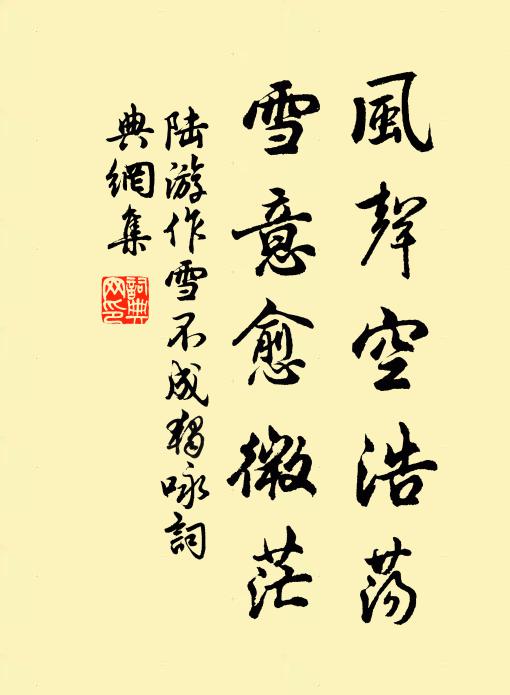 風聲空浩蕩
雪意愈微茫
陸游作雪不成獨咏詞
典網集
詞典网印